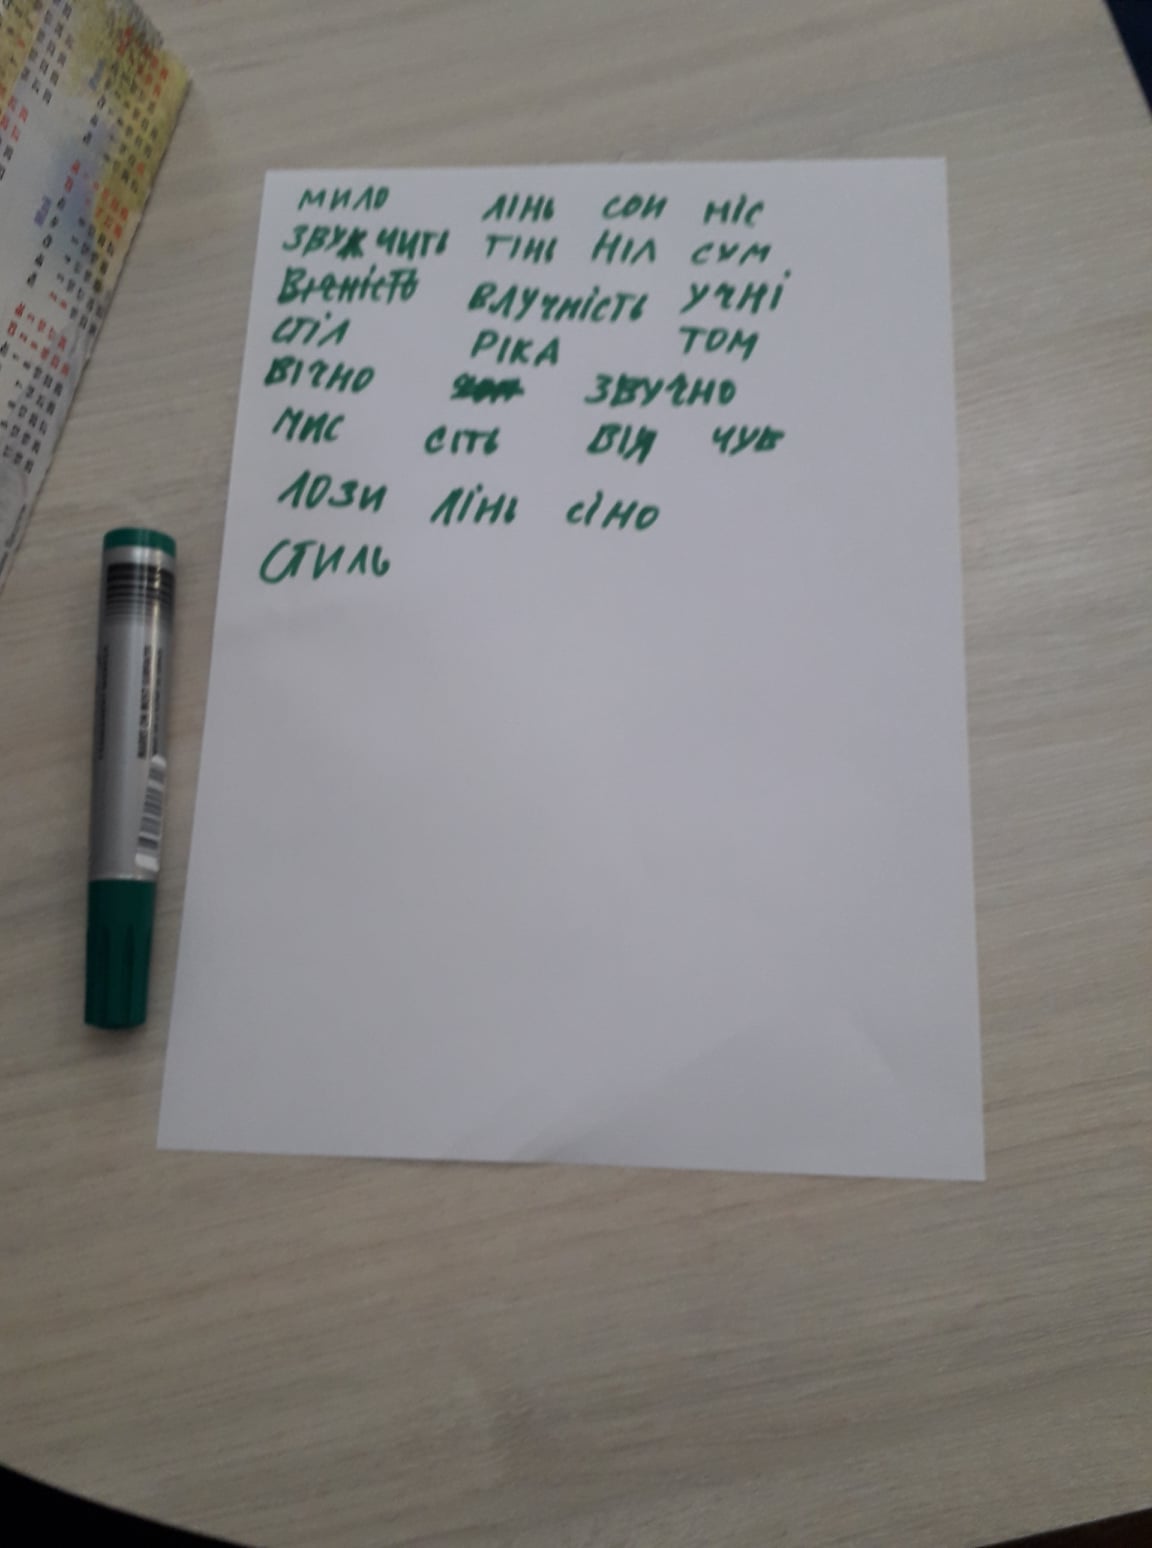 мило лінь сон ніс
звук чить тінь ніл сум
влучність учні
стіл ріка том
вічно звучно
мис сіть від чув
лози лінь сіно
стиль